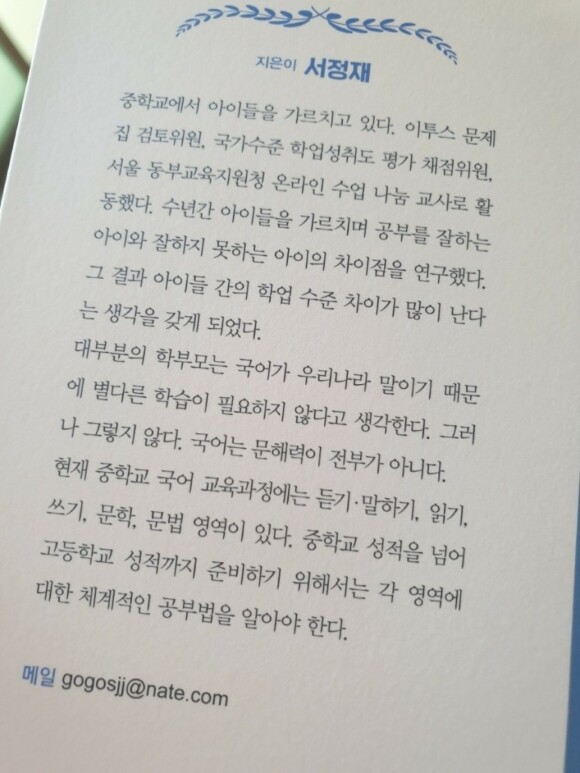 지은이 서정재
중학교에서 아이들을 가르치고 있다. 이투스 문제
집 검토위원, 국가수준 학업성취도 평가 채점위원,
서울 동부교육지원청 온라인 수업 나눔 교사로 활
동했다. 수년간 아이들을 가르치며 공부를 잘하는
아이와 잘하지 못하는 아이의 차이점을 연구했다.
그 결과 아이들 간의 학업 수준 차이가 많이 난다
는 생각을 갖게 되었다.
대부분의 학부모는 국어가 우리나라 말이기 때문
에 별다른 학습이 필요하지 않다고 생각한다. 그러
나 그렇지 않다. 국어는 문해력이 전부가 아니다.
현재 중학교 국어 교육과정에는 듣기·말하기, 읽기,
쓰기, 문학, 문법 영역이 있다. 중학교 성적을 넘어
고등학교 성적까지 준비하기 위해서는 각 영역에
대한 체계적인 공부법을 알아야 한다.
메일 gogosjj@nate.com